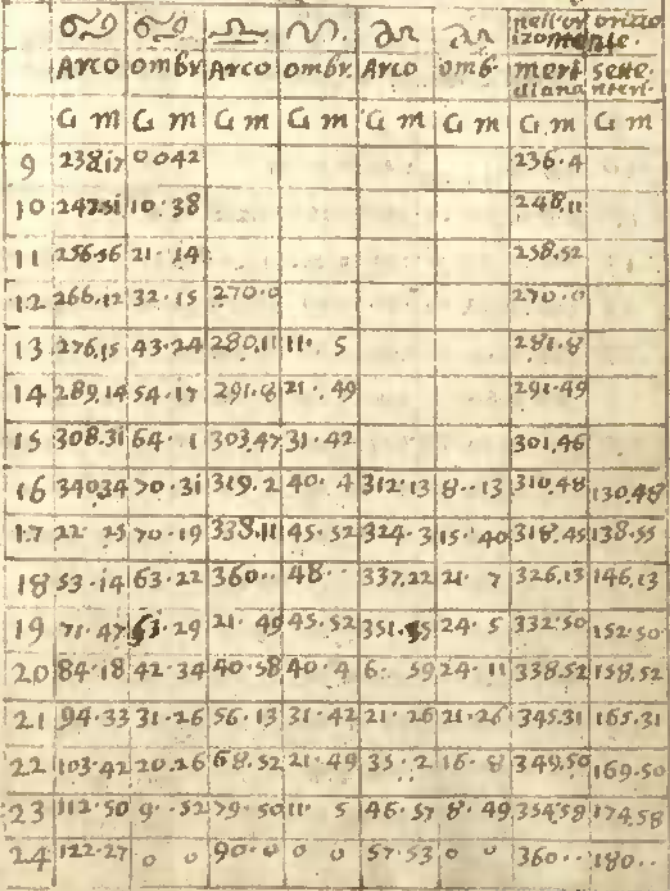 ♋ ♋ ♎ ♎ ♑ ♑ nell'or orizzo
izomente.
Arco ombr Arco ombr. Arco omb. meri sette
diana ntri.
G m G m G m G m G m G m G m G m
9 238.17 0 042 236.4
10 247.51 10.38 248.11
11 256.56 21.14 258.52
12 266.12 32.15 270.0 270.0
13 276.15 43.24 280.11 11. 5 281.8
14 289.14 54.17 291.8 21.49 291.49
15 308.31 64. 1 303.47 31.42 301.46
16 34034 70.31 319.2 40. 4 312.13 8..13 310.48 130.48
17 22 25 70.19 338.11 45.52 324.3 15.40 318.45 138.55
18 53.14 63.22 360.. 48.. 337.22 21. 7 326.13 146.13
19 71.47 53.29 21.49 45.52 351.55 24. 5 332.50 152.50
20 84.18 42.34 40.58 40.4 6. 59 24.11 338.52 158.52
21 94.33 31.26 56.13 31.42 21.26 21.26 345.31 165.31
22 103.42 20.26 68.52 21.49 35.2 16. 8 349.50 169.50
23 112.50 9..52 79.50 11. 5 46.57 8.49 354.58 174.58
24 122.27 0 0 90.0 0 0 57.53 0 0 360.. 180..